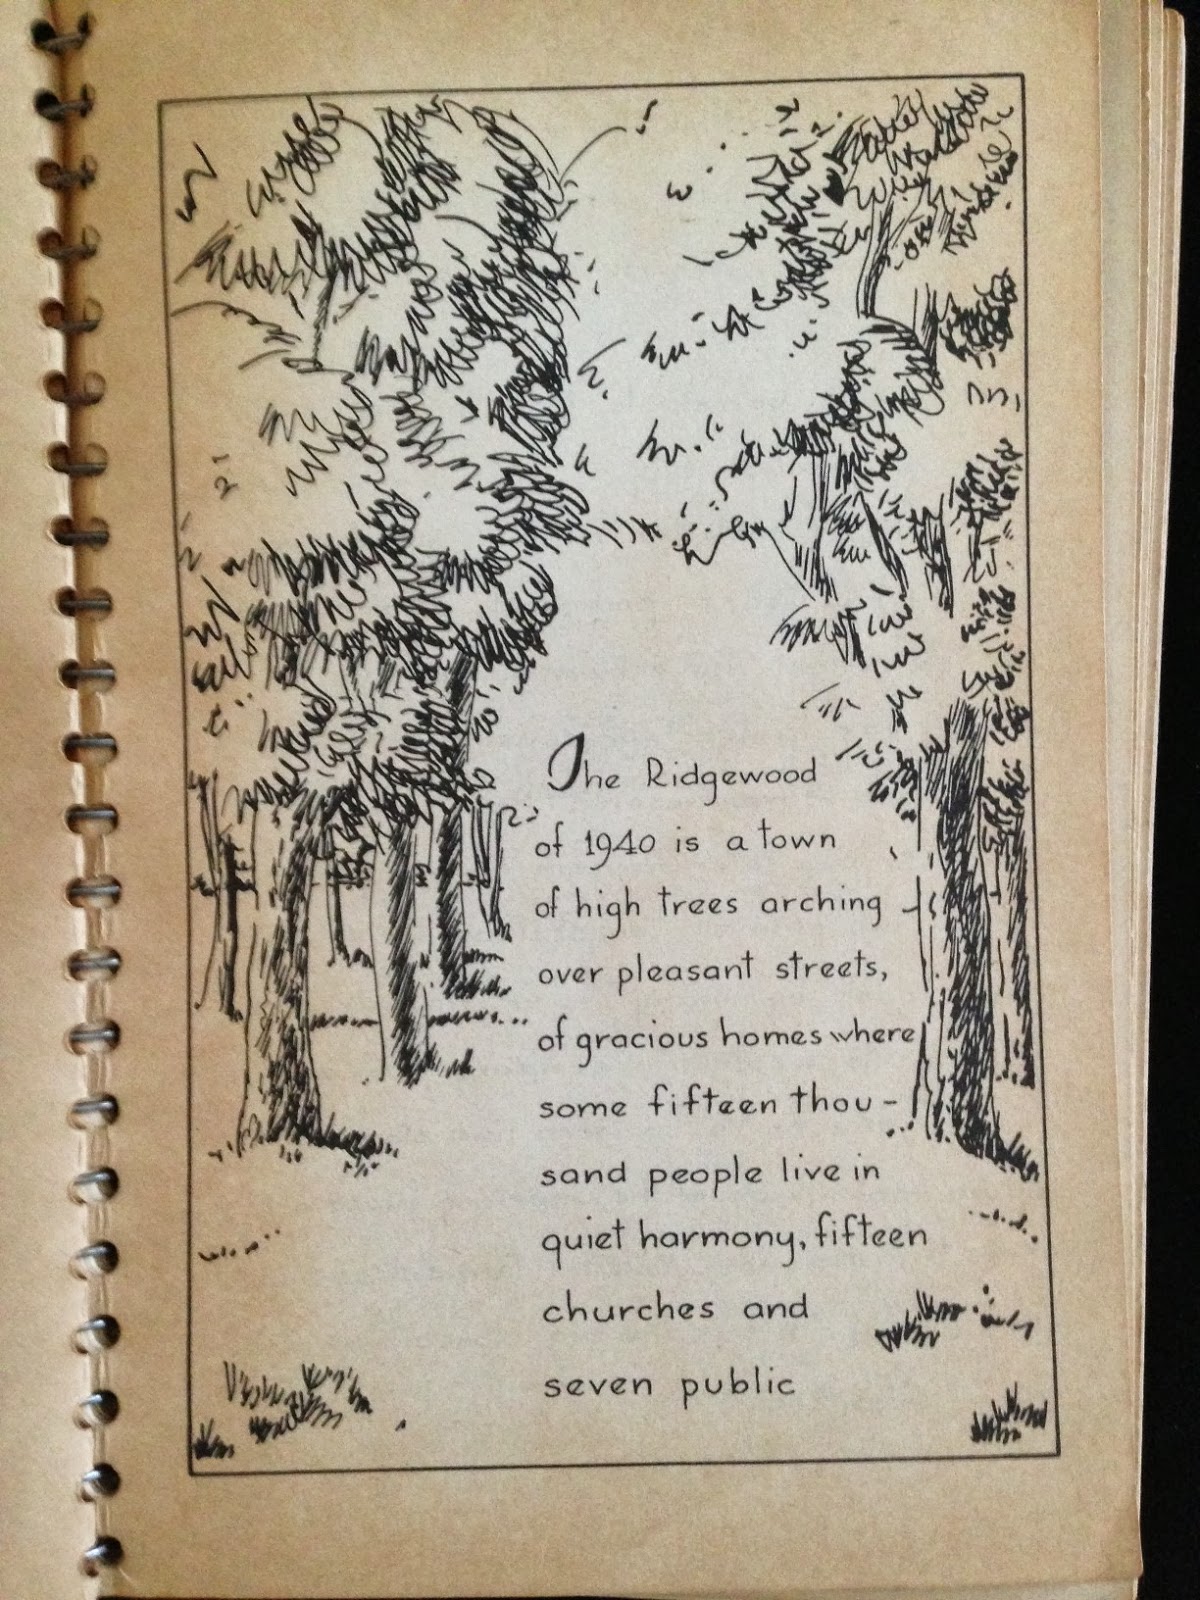 The Ridgewood
of 1940 is a town
of high trees arching
over pleasant streets,
of gracious homes where
some fifteen thou-
sand people live in
quiet harmony, fifteen
churches and
seven public